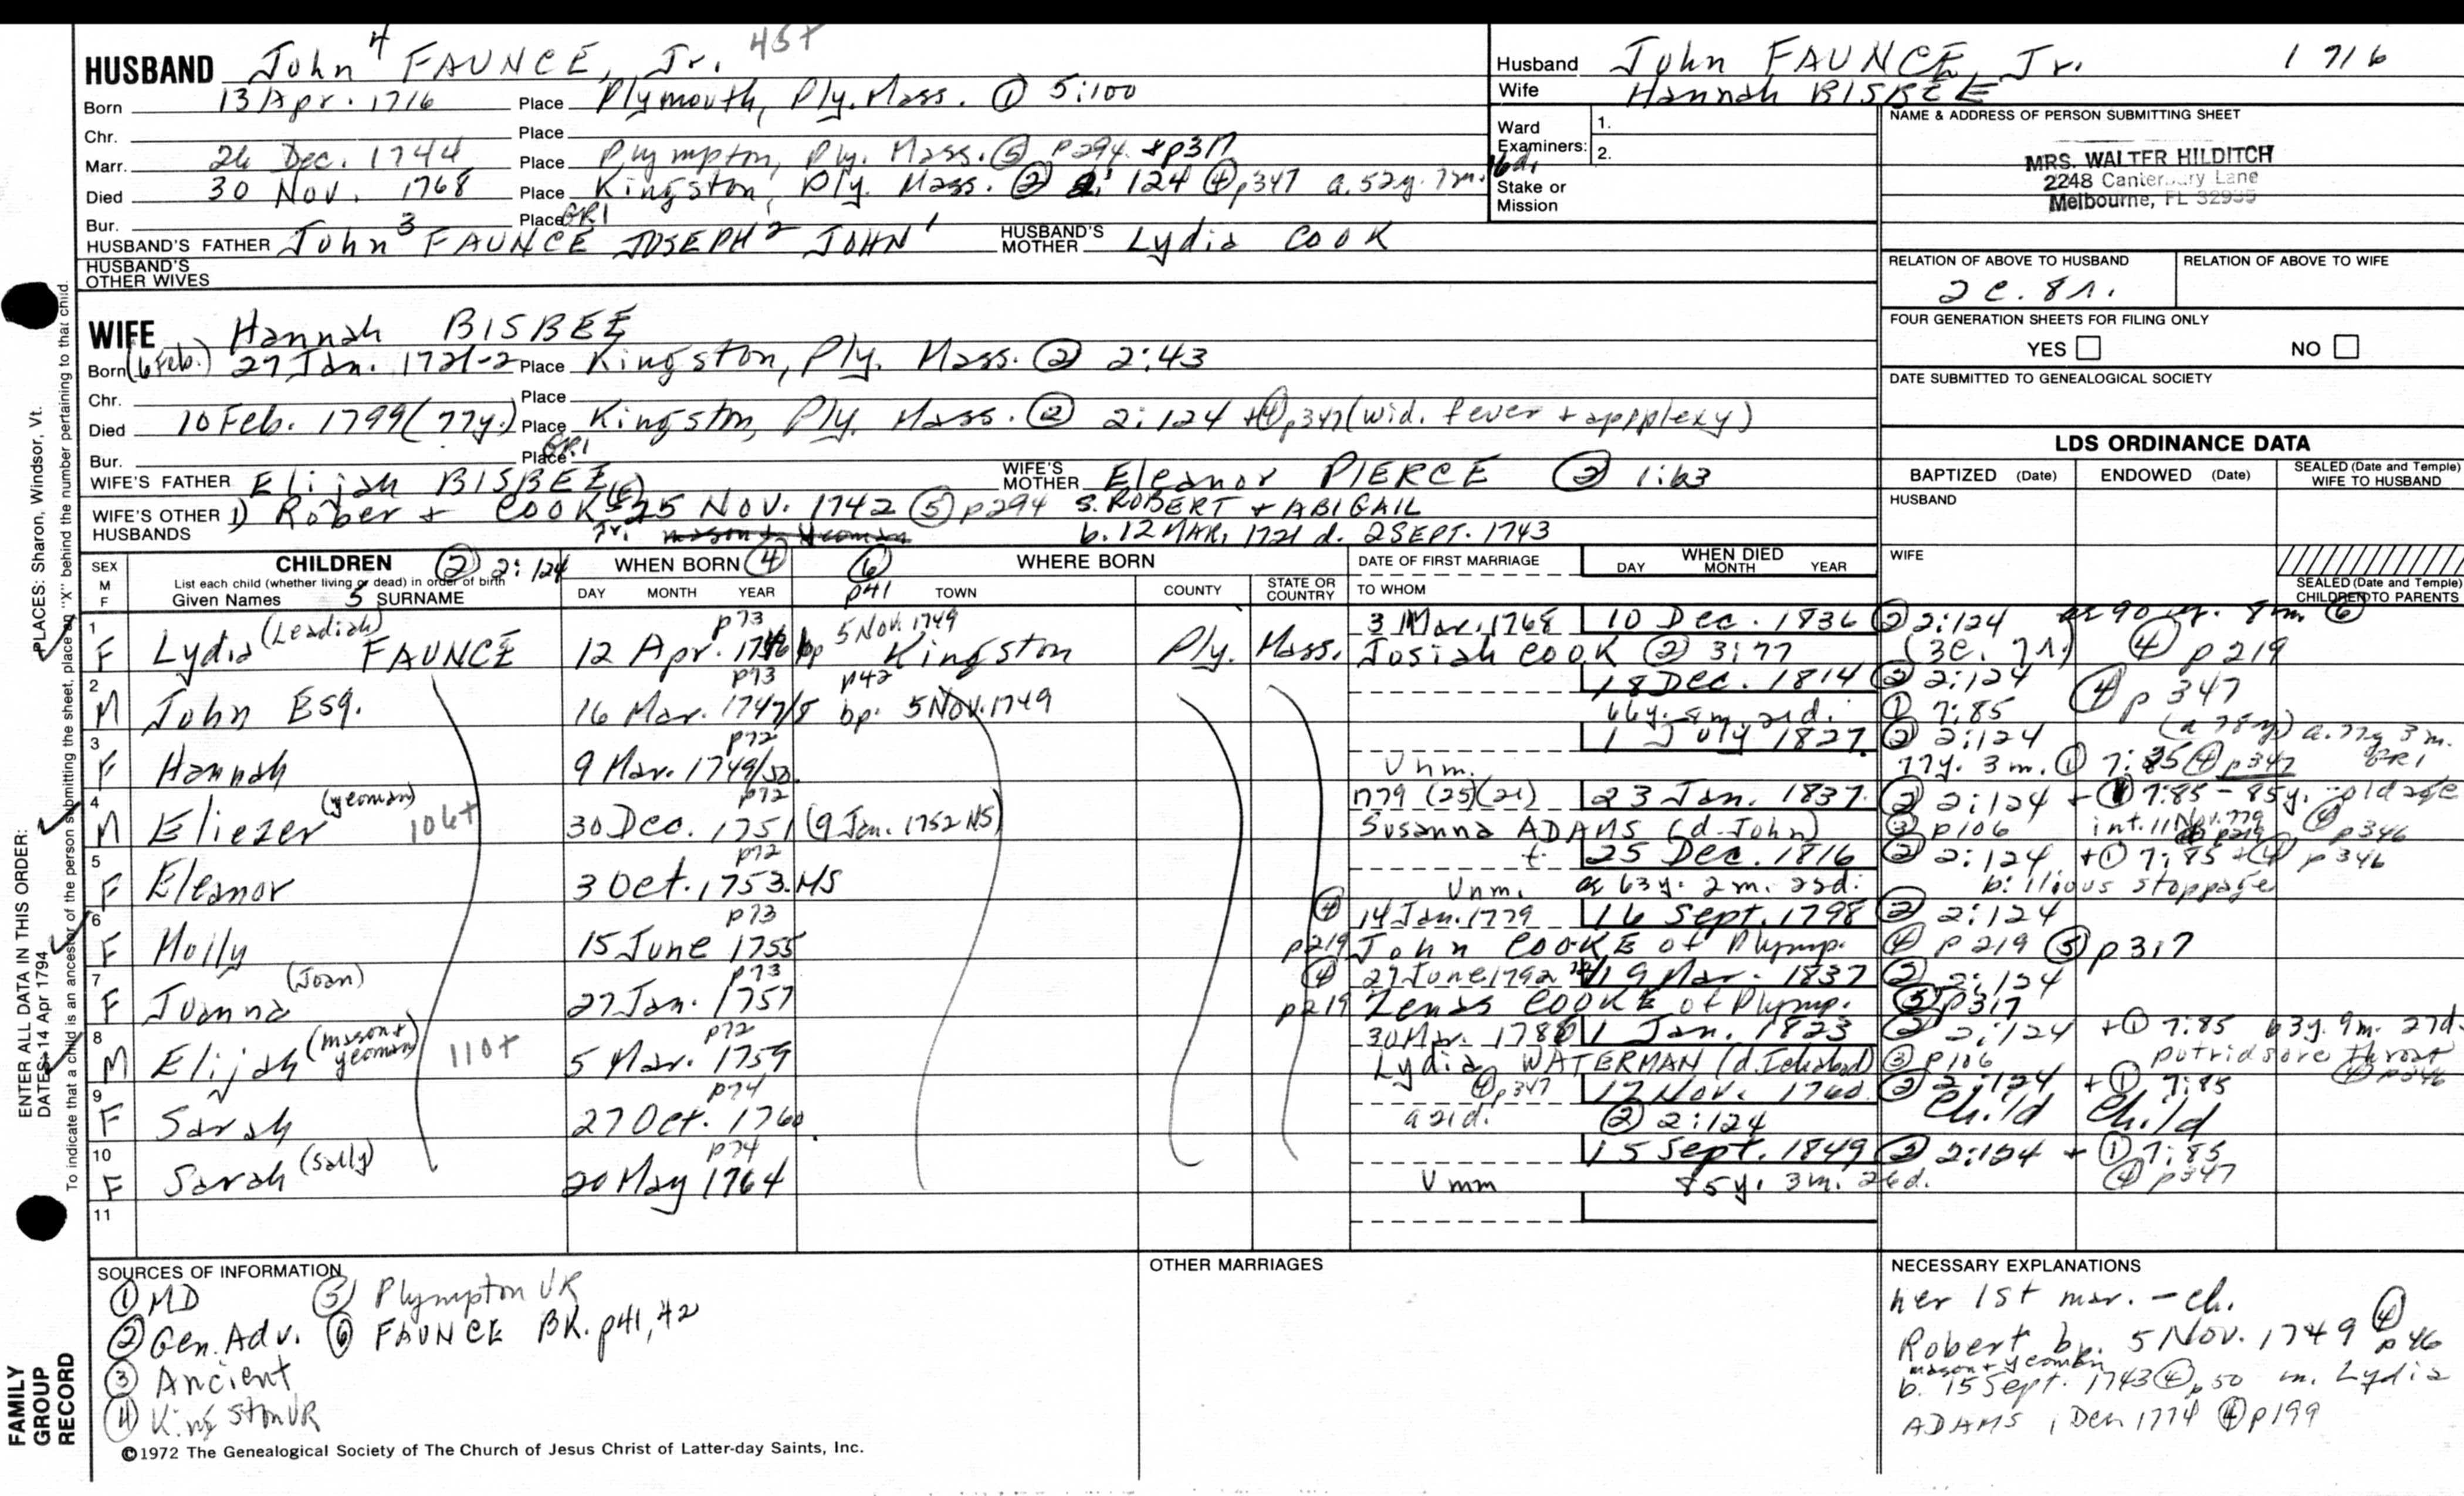 HUSBAND John 4 FAUNCE, Jr. 45+
Born 13 Apr. 1716 Place Plymouth, Ply. Mass. ① 5:100
Chr. Place
Marr. 26 Dec. 1744 Place Plympton, Ply. Mass. ⑤ p294 + p317
Died 30 Nov. 1768 Place Kingston, Ply. Mass. ② 2: 124 ④ p347 a. 52y. 7m.
Bur. Place GR1
HUSBAND'S FATHER John 3 FAUNCE JOSEPH 2 JOHN 1 HUSBAND'S MOTHER Lydia COOK
HUSBAND'S OTHER WIVES
WIFE Hannah BISBEE
Born (6 Feb.) 27 Jan. 1721-2 Place Kingston, Ply. Mass. ② 2:43
Chr. Place
Died 10 Feb. 1799 (77y.) Place Kingston, Ply. Mass. ② 2:124 + ④ p347 (wid. fever + appplexy)
Bur. Place GR1
WIFE'S FATHER Elijah BISBEE WIFE'S MOTHER Eleanor PIERCE ② 1:63
WIFE'S OTHER HUSBANDS 1) Robert COOK (E) 25 NOV. 1742 ⑤ p294 S. ROBERT + ABIGAIL
Jr. mason + yeoman b. 12 MAR. 1721 d. 2 SEPT. 1743
Husband John FAUNCE, Jr. 1716
Wife Hannah BISBEE
Ward Examiners: 1.
2.
Stake or Mission
NAME & ADDRESS OF PERSON SUBMITTING SHEET
MRS. WALTER HILDITCH
2248 Canterbury Lane
Melbourne, FL 32935
RELATION OF ABOVE TO HUSBAND RELATION OF ABOVE TO WIFE
2c. 8r.
FOUR GENERATION SHEETS FOR FILING ONLY
YES NO
DATE SUBMITTED TO GENEALOGICAL SOCIETY
LDS ORDINANCE DATA
BAPTIZED (Date) ENDOWED (Date) SEALED (Date and Temple) WIFE TO HUSBAND
HUSBAND
WIFE
SEALED (Date and Temple) CHILDREN TO PARENTS
SEX M F CHILDREN ② 2:124 WHEN BORN ④ ⑥ p41 WHERE BORN DATE OF FIRST MARRIAGE WHEN DIED
List each child (whether living or dead) in order of birth
Given Names 5 SURNAME DAY MONTH YEAR TOWN COUNTY STATE OR COUNTRY TO WHOM DAY MONTH YEAR
1 p73 5 Nov. 1749 3 Mar. 1768 10 Dec. 1836 ② 2:124 ae 90 y. 8m. ⑥
F Lydia (Leadiah) FAUNCE 12 Apr. 1746 bp Kingston Ply. Mass. Josiah COOK ② 3:77 (3c. 7r.) ④ p219
2 p73 p42 18 Dec. 1814 ② 2:124 ④ p347
M John Esq. 16 Mar. 1747/8 bp. 5 NOV. 1749 66y. 8m. 21d. ① 7:85
3 p72 1 July 1827 ② 2:124 (a 78y) a. 77y 3m.
F Hannah 9 Mar. 1749/50 Unm. 77y. 3m. ① 7:85 ④ p347 GR1
4 p72 1779 (25)(21) 23 Jan. 1837 ② 2:124 + ① 7:85 - 85y. old age
M Eliezer (yeoman) 106+ 30 Dec. 1751 (9 Jan. 1752 NS) Susanna ADAMS (d. John) ③ p106 int. 11 Nov. 1779 p219 ④ p346
5 p72 25 Dec. 1816 ② 2:124 + ① 7:85 + ④ p346
F Eleanor 3 Oct. 1753 NS Unm. ae 63y. 2m. 22d. bilious stoppage
6 p73 ④ 14 Jan. 1779 16 Sept. 1798 ② 2:124
F Molly 15 June 1755 p219 John COOKE of Plymp. ④ p219 ⑤ p317
7 p73 ④ 27 June 1792 19 Mar. 1837 ② 2:124
F Joanna (Joan) 27 Jan. 1757 p219 Zenas COOKE of Plymp. ⑤ p317
8 p72 30 Mar. 1786 1 Jan. 1823 ② 2:124 + ① 7:85 63y. 9m. 27d.
M Elijah (mason + yeoman) 110+ 5 Mar. 1759 Lydia WATERMAN (d. Ichabod) ③ p106 putrid sore throat ④ p346
9 p74 ④ p347 17 Nov. 1760 ② 2:124 + ① 7:85
F Sarah 27 Oct. 1760 a 21d. ② 2:124 Child Child
10 p74 15 Sept. 1849 ② 2:124 + ① 7:85
F Sarah (Sally) 20 May 1764 Unm 85y. 3m. 26d. ④ p347
11
SOURCES OF INFORMATION OTHER MARRIAGES NECESSARY EXPLANATIONS
① MD ⑤ Plympton VR
② Gen. Adv. ⑥ FAUNCE BK. p41, 42
③ Ancient
④ Kingston VR
her 1st mar. - ch.
Robert bp. 5 Nov. 1749 ④ p46
mason + yeoman
b. 15 Sept. 1743 ④ p50 m. Lydia
ADAMS, Dec 1774 ④ p199
©1972 The Genealogical Society of The Church of Jesus Christ of Latter-day Saints, Inc.
FAMILY GROUP RECORD
ENTER ALL DATA IN THIS ORDER:
DATES: 14 Apr 1794 PLACES: Sharon, Windsor, Vt.
To indicate that a child is an ancestor of the person submitting the sheet, place an "X" behind the number pertaining to that child.